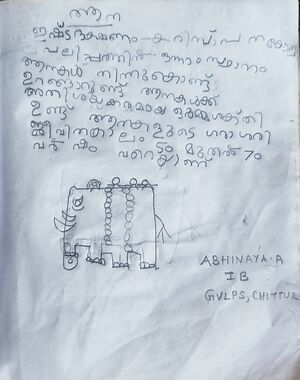 ആന
ഇഷ്ടഭക്ഷണം - കരിമ്പ്, പന
വലിപ്പത്തിൽ ഒന്നാം സ്ഥാനം
ആനകൾ നിന്നുകൊണ്ട്
ഉറങ്ങാറുണ്ട് ആനകൾക്ക്
അതിശയകരമായ ഓർമ്മശക്തി
ഉണ്ട് ആനകളുടെ ശരാശരി
ജീവിതകാലം 50 മുതൽ 70
വർഷം വരെയാണ്
ABHINAYA.A
I B
GVLPS, CHITTUR